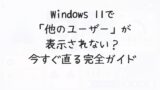 Windows 11で
「他のユーザー」が
表示されない？
今すぐ直る完全ガイド